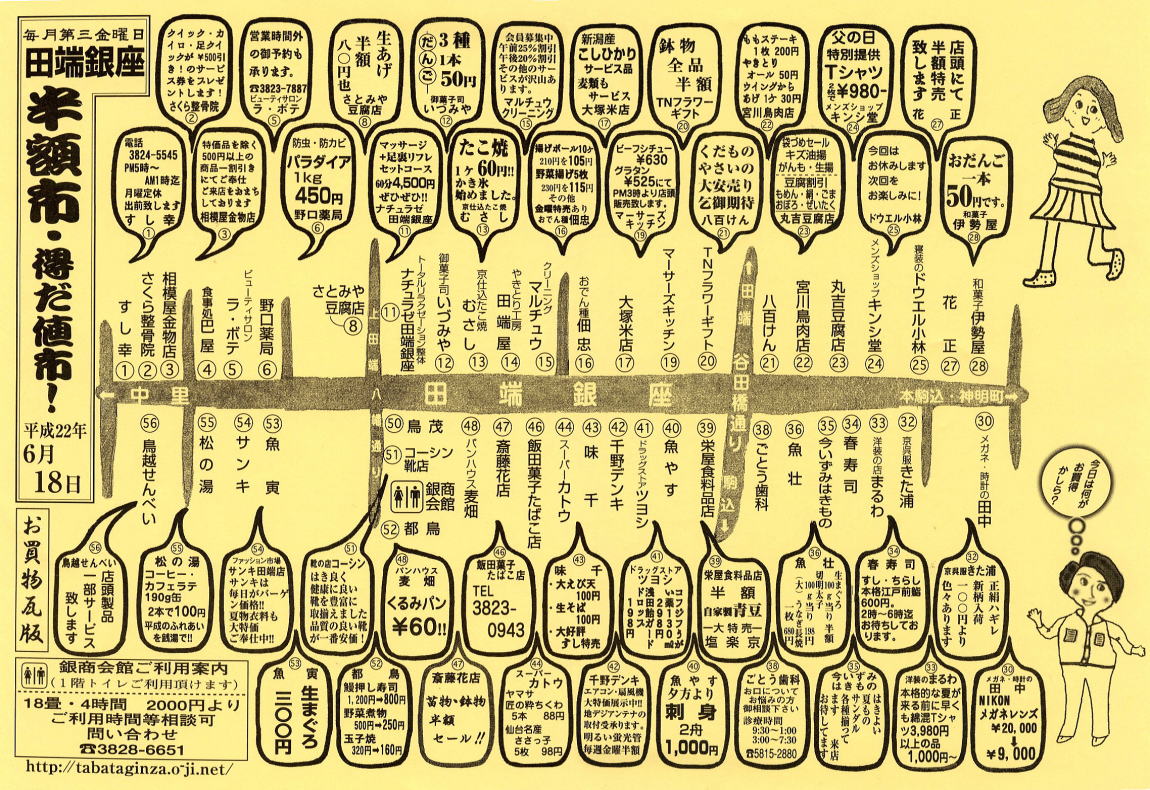 毎月第三金曜日
田端銀座
半額市・得だ値市！
平成22年
6月
18日
お買物瓦版
銀商会館ご利用案内
(１階トイレご利用頂けます)
18畳・4時間　2000円より
ご利用時間等相談可
問い合わせ
☎3828-6651
http://tabataginza.o-ji.net/
クイック・カ
イロ・足クイ
ックが ¥500引
き！のサービ
ス券をプレゼ
ントします！
さくら整骨院
②
営業時間外
の御予約も
承ります。
☎3823-7887
ビューティサロン
ラ・ボテ
⑤
生あげ
半額
八〇円也
さとみや
豆腐店
⑧
だんご
3種
1本
50円
御菓子司
いづみや
⑫
会員募集中
午前25%割引
午後20%割引
その他のサー
ビスが沢山あ
ります。
マルチュウ
クリーニング
⑮
新潟産
こしひかり
サービス品
麦類も
サービス
大塚米店
⑰
鉢物
全品
半額
TNフラワー
ギフト
⑳
ももステーキ
1枚 200円
やきとり
オール 50円
ウイングから
あげ 1ケ 30円
宮川鳥肉店
㉒
父の日
特別提供
Tシャツ
2枚で¥980-
メンズショップ
キンシ堂
㉔
店頭にて
半額特売
致します。
花正
㉗
電話
3824-5545
PM5時〜
AM1時迄
月曜定休
出前致します
すし幸
①
特価品を除く
500円以上の
商品一割引き
にてご奉仕
ご来店をおまち
しております
相模屋金物店
③
防虫・防カビ
パラダイア
1kg
450円
野口薬局
⑥
マッサージ
＋足裏リフレ
セットコース
60分4,500円
ぜひぜひ!!
ナチュラゼ
田端銀座
⑪
たこ焼
1ヶ60円!!
かき氷
始めました。
京仕込たこ焼
むさし
⑬
揚げボール10ヶ
210円を105円
野菜揚げ5枚
230円を115円
その他
金曜特売あり
おでん種佃忠
⑯
ビーフシチュー
¥630
グラタン
¥525にて
PM3時より店頭
販売致します。
マーサーズ
キッチン
⑲
くだもの
やさいの
大安売り
乞御期待
八百けん
㉑
袋づめセール
キズ油揚
がんも・生揚
豆腐割引
もめん・絹・ごま
おぼろ・ぜいたく
丸吉豆腐店
㉓
今回は
お休みします
次回を
お楽しみに！
ドウエル小林
㉕
おだんご
一本
50円です。
和菓子
伊勢屋
㉘
すし幸①
さくら整骨院②
相模屋金物店③
食事処巴屋④
ビューティサロン
ラ・ボテ⑤
野口薬局⑥
さとみや
豆腐店
⑧
⑪
トータルリラクゼーション整体
ナチュラゼ田端銀座
御菓子司いづみや⑫
京仕込たこ焼
むさし⑬
やきとり工房
田端屋⑭
クリーニング
マルチュウ⑮
おでん種佃忠⑯
大塚米店⑰
マーサーズキッチン⑲
TNフラワーギフト⑳
八百けん㉑
宮川鳥肉店㉒
丸吉豆腐店㉓
メンズショップキンシ堂㉔
寝装のドウエル小林㉕
花正㉗
和菓子伊勢屋㉘
←中里
田端銀座
本駒込・神明町→
上田端八幡通り
↑田端
谷田橋通り
駒込↓
㊶鳥越せんべい
㊺松の湯
㊴サンキ
㊳魚寅
㊿鳥茂
51コーシン
靴店
銀商
会館
52都鳥
㊽パンハウス麦畑
㊼斎藤花店
㊻飯田菓子たばこ店
㊹スーパーカトウ
㊸味千
㊷千野デンキ
㊶ドラッグストアツヨシ
㊵魚やす
㊴栄屋食料品店
㊳ごとう歯科
㊱魚壮
㉟今いずみはきもの
㉞春寿司
㉝洋装の店まるわ
㉜京呉服きた浦
㉚メガネ・時計の田中
今日は何が
お買得
かしら？
56
鳥越せんべい
店頭製品
一部サービス
致します
55
松の湯
コーヒー・
カフェラテ
190g缶
2本で100円
平成のふれあい
を銭湯で!!
54
ファッション市場
サンキ田端店
サンキは
毎日がバーゲ
ン価格!!
夏物衣料も
大特価
ご奉仕中!!
51
靴の店コーシン
はき良く
健康に良い
靴を豊富に
取揃えました
品質の良い靴
が一番安価！
㊽
パンハウス
麦畑
くるみパン
¥60!!
㊻
飯田菓子
たばこ店
TEL
3823-
0943
㊸
味千
・大えび天
100円
・生そば
100円
・大好評
すし特売
㊶
ドラッグストア
ツヨシ
㊴
栄屋食料品店
半額
自家製青豆
―大特売―
塩楽京
㊱
魚壮
㉞
春寿司
すし・ちらし
本格江戸前鮨
600円。
2時〜6時迄
お待ちしてお
ります。
㉜
京呉服きた浦
正絹ハギレ
新柄入荷
一〇〇円より
色々あります
53
魚寅
生まぐろ
三〇〇円
52
都鳥
鰻押し寿司
1,200円→800円
野菜煮物
500円→250円
玉子焼
320円→160円
㊼
斎藤花店
苗物・鉢物
半額
セール!!
㊹
スーパー
カトウ
ヤマサ
匠の粋ちくわ
5本　88円
仙台名産
ささっ子
5枚　98円
㊷
千野デンキ
エアコン・扇風機
大特価展示中!!
地デジアンテナの
取付受承ります。
明るい蛍光管
毎週金曜半額
㊵
魚やす
夕方より
刺身
2舟
1,000円
㊳
ごとう歯科
お口について
お悩みの方
御相談下さい
診療時間
9:30〜1:00
3:00〜7:30
☎5815-2880
㉟
今いずみ
はきもの
はきよい
夏もの
サンダル
各種揃って
ます　来店
お待してます
㉝
洋装のまるわ
本格的な夏が
来る前に早く
も綿混Tシャ
ツ3,980円
以上の品
1,000円〜
㉚
メガネ・時計の
田中
NIKON
メガネレンズ
¥20,000
↓
¥9,000